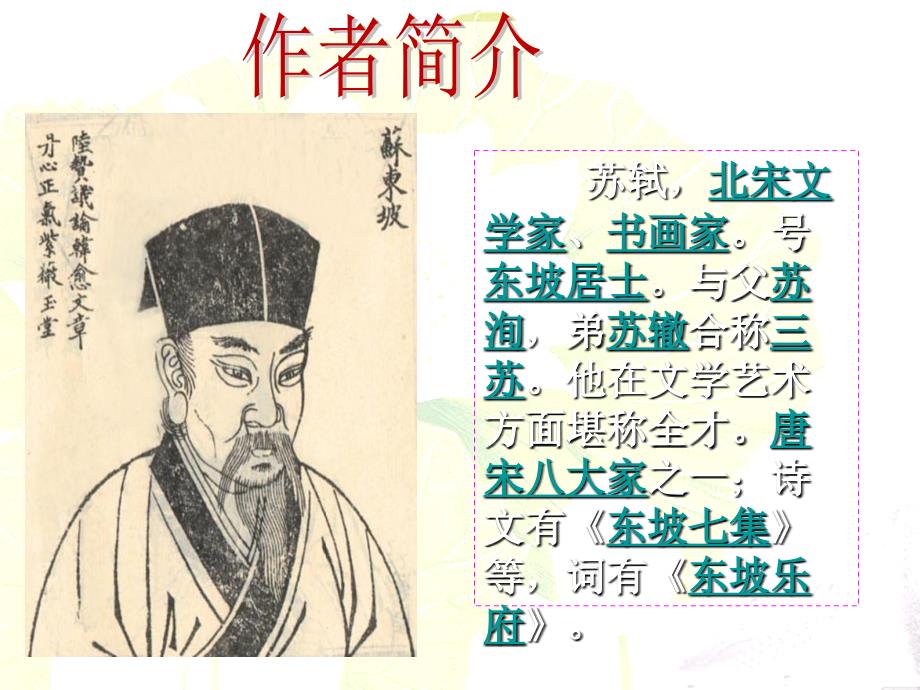 作者简介
蘇東坡
陸贄議論韓愈文章
丹心正氣紫薇玉堂
苏轼，北宋文
学家、书画家。号
东坡居士。与父苏
洵，弟苏辙合称三
苏。他在文学艺术
方面堪称全才。唐
宋八大家之一；诗
文有《东坡七集》
等，词有《东坡乐
府》。